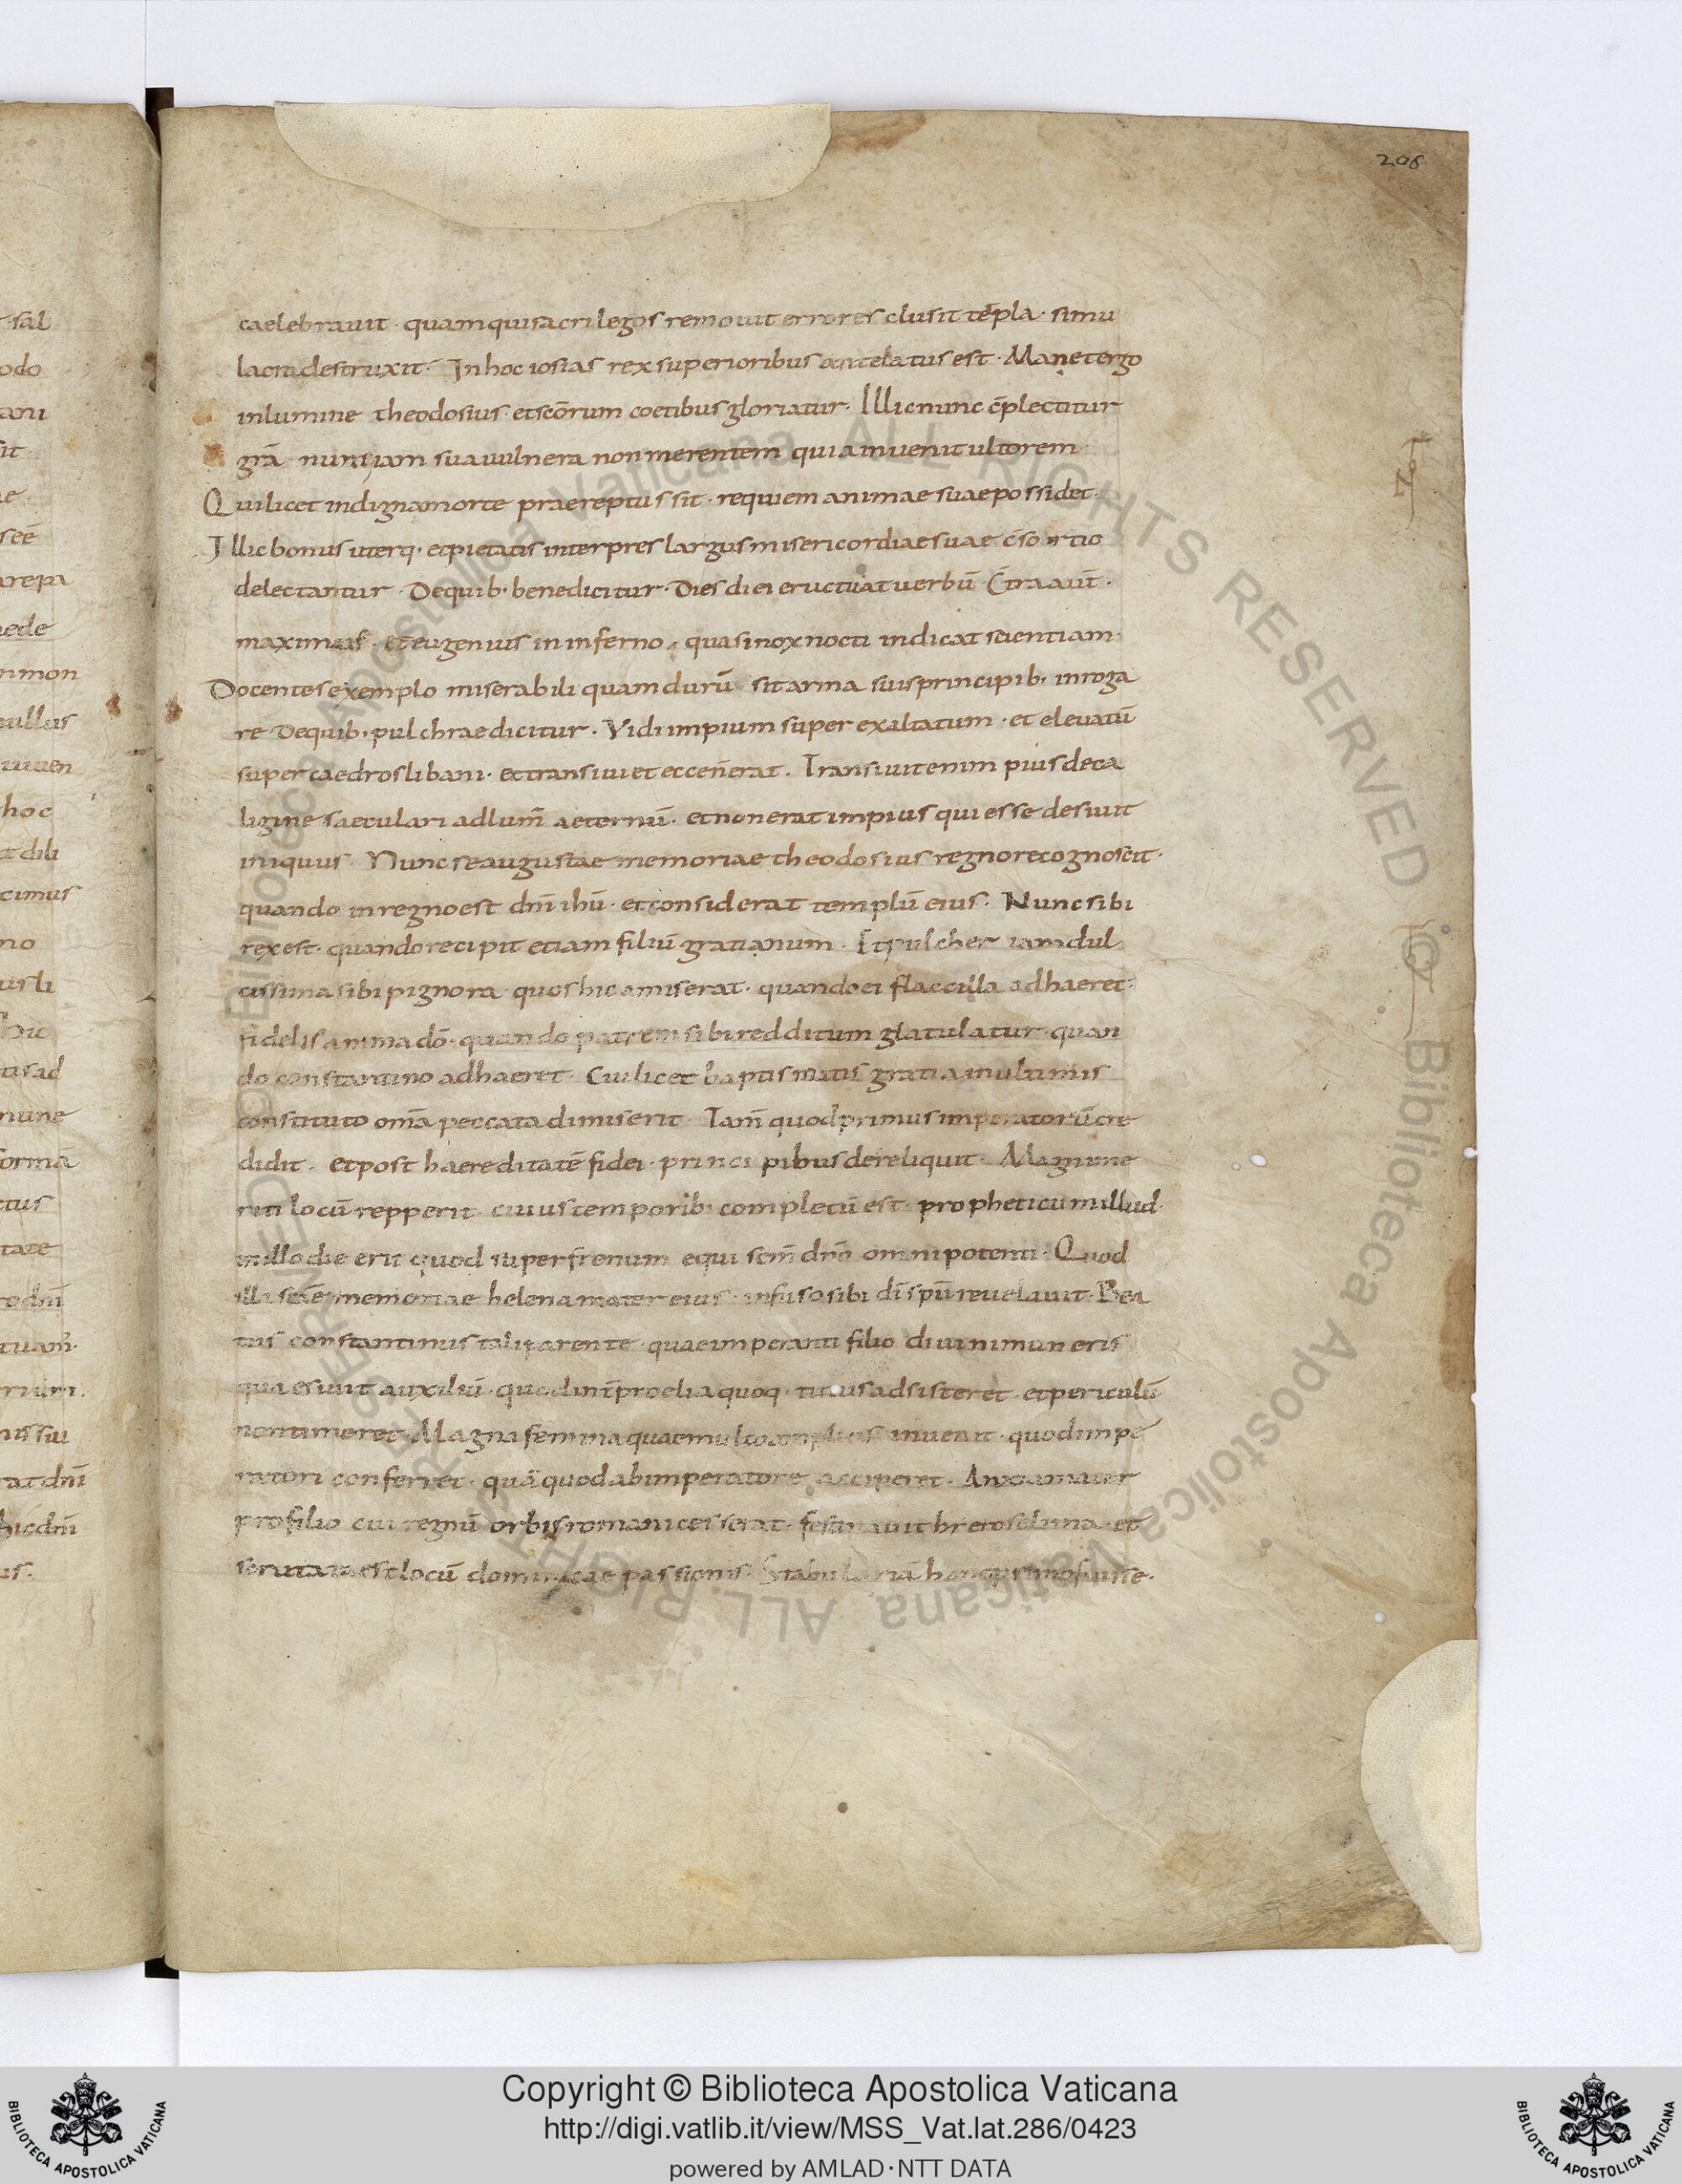 208
caelebrauit · quam qui sacrilegos remouit errores clusit tẽpla · simu
lacra destruxit · In hoc iosias rex superioribus antelatus est · Manet ergo
in lumine theodosius · et scõrum coetibus gloriatur · Illic nunc cõplectitur
grã nuntiam sua uulnera non merentem quia inuenit ultorem
Qui licet indigna morte praereptus sit · requiem animae suae possidet ·
Illic bonus uterq· et pietatis interpres largus misericordiae suae c̄sortio
delectantur · De quib· bene dicitur · Dies diei eructuat uerbũ · C̄tra aut̄ ·
maximus · et eugenius in inferno · quasi nox nocti indicat scientiam ·
Docentes exemplo miserabili quam durũ sit arma suis principib· inroga
re De quib· pulchrae dicitur · Vidi impium super exaltatum · et eleuatũ
super caedros libani · et transiui et ecce n̄ erat · Transiuit enim pius de ca
ligine saeculari ad lum̄ aeternũ · et non erat impius qui esse desiuit
iniquus · Nunc se augustae memoriae theodosius regno recognoscit ·
quando in regno est dn̄i ihũ · et considerat templũ eius · Nunc sibi
rex est · quando recipit etiam filiũ gratianum · Et pulcher iam dul
cissima sibi pignora quos hic amiserat · quando ei flaccilla adhaeret ·
fidelis anima dõ · quando patrem sibi redditum glatulatur · quan
do constantino adhaeret · Cui licet baptismatis gratia in ultimis
constituto om̄a peccata dimiserit · Tam̄ quod primus imperatorũ cre
didit · et post haereditatẽ fidei · principibus dereliquit · Magni me
riti locũ repperit cuius temporib· completũ est · propheticum illud ·
in illo die erit quod super frenum equi scm̄ dn̄o omnipotenti · Quod
illa scẽ memoriae helena mater eius · infuso sibi dī sp̄u reuelauit · Bea
tus constantinus tali parente · quae imperanti filio diuini muneris
quaesiuit auxiliũ · quod int̄ proelia quoq· tutus adsisteret et periculũ
non timeret · Magna femina quae multo amplius inuenit · quod impe
ratori conferret · quã quod ab imperatore acciperet · Anxia mater
pro filio cui regnũ orbis romani cesserat · festinauit hierosolima et
scrutata est locũ dominicae passionis · Stabulariã hanc primo fuisse ·
Copyright © Biblioteca Apostolica Vaticana
http://digi.vatlib.it/view/MSS_Vat.lat.286/0423
powered by AMLAD·NTT DATA